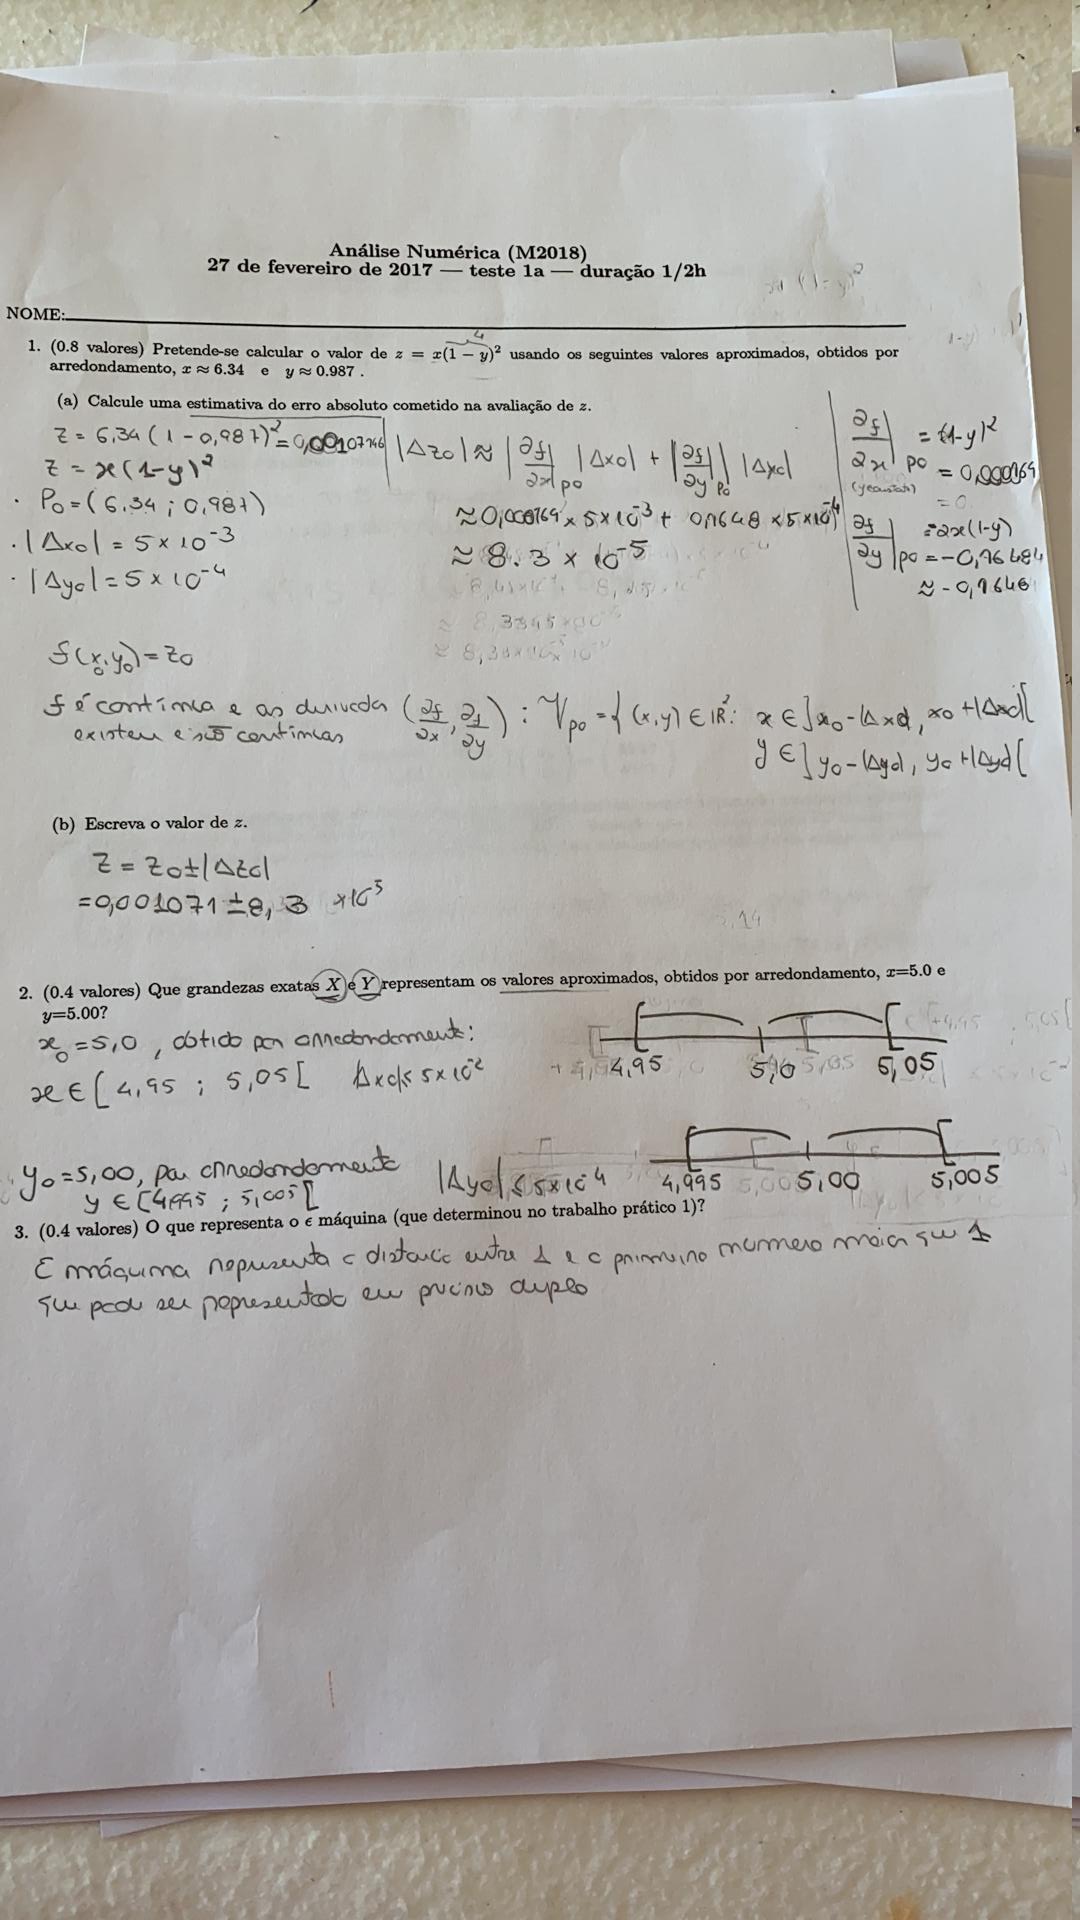 Análise Numérica (M2018)
27 de fevereiro de 2017 — teste 1a — duração 1/2h
NOME:
1. (0.8 valores) Pretende-se calcular o valor de z = x(1 − y)² usando os seguintes valores aproximados, obtidos por
arredondamento, x ≈ 6.34 e y ≈ 0.987 .
(a) Calcule uma estimativa do erro absoluto cometido na avaliação de z.
Z = 6,34 (1 - 0,987)² = 0,00107146
Z = x(1-y)²
· P0 = (6,34 ; 0,987)
· |Δx0| = 5 × 10⁻³
· |Δy0| = 5 × 10⁻⁴
|Δz0| ≈ |∂f/∂x|P0 |Δx0| + |∂f/∂y|P0 |Δy0|
≈ 0,000169 × 5×10⁻³ + 0,1648 × 5×10⁻⁴
≈ 8.3 × 10⁻⁵
∂f/∂x|P0 = (1-y)²
= 0,000169
= 0
∂f/∂y|P0 = -2x(1-y)
= -0,16484
≈ -0,1648
f(x0,y0) = z0
f é contínua e as derivadas (∂f/∂x, ∂f/∂y) : Vp0 = { (x,y) ∈ IR²: x ∈ ]x0 - |Δx0|, x0 + |Δx0|[
existem e são contínuas
y ∈ ]y0 - |Δy0|, y0 + |Δy0|[
(b) Escreva o valor de z.
Z = Z0 ± |ΔZ0|
= 0,001071 ± 8,3 ×10⁵
2. (0.4 valores) Que grandezas exatas X e Y representam os valores aproximados, obtidos por arredondamento, x=5.0 e
y=5.00?
x0 = 5,0 , obtido por arredondamento:
x ∈ [4,95 ; 5,05[ |Δx0| ≤ 5×10⁻²
4,95 5,0 5,05
y0 = 5,00, por arredondamento
y ∈ [4,995 ; 5,005[
|Δy0| ≤ 5×10⁻⁴
4,995 5,00 5,005
3. (0.4 valores) O que representa o ϵ máquina (que determinou no trabalho prático 1)?
E máquina representa a distancia entre 1 e o primeiro numero maior que 1
que pode ser representado em precisão dupla